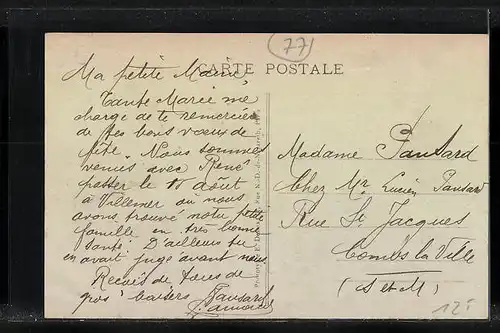 77
CARTE POSTALE
Ma petite Marie,
Tante Marie me
charge de te remercier
de tes bons voeux de
fête. Nous sommes
venus avec René
passer le 15 Août
à Villemer où nous
avons trouvé notre petite
famille en très bonne
santé. D'ailleurs tu
en avait jugé avant nous.
Recois de tous de
gros baisers Pansard
Madame Pansard
Chez Mr Lucien Pansard
Rue St Jacques
Combs la Ville
(S et M)
12f